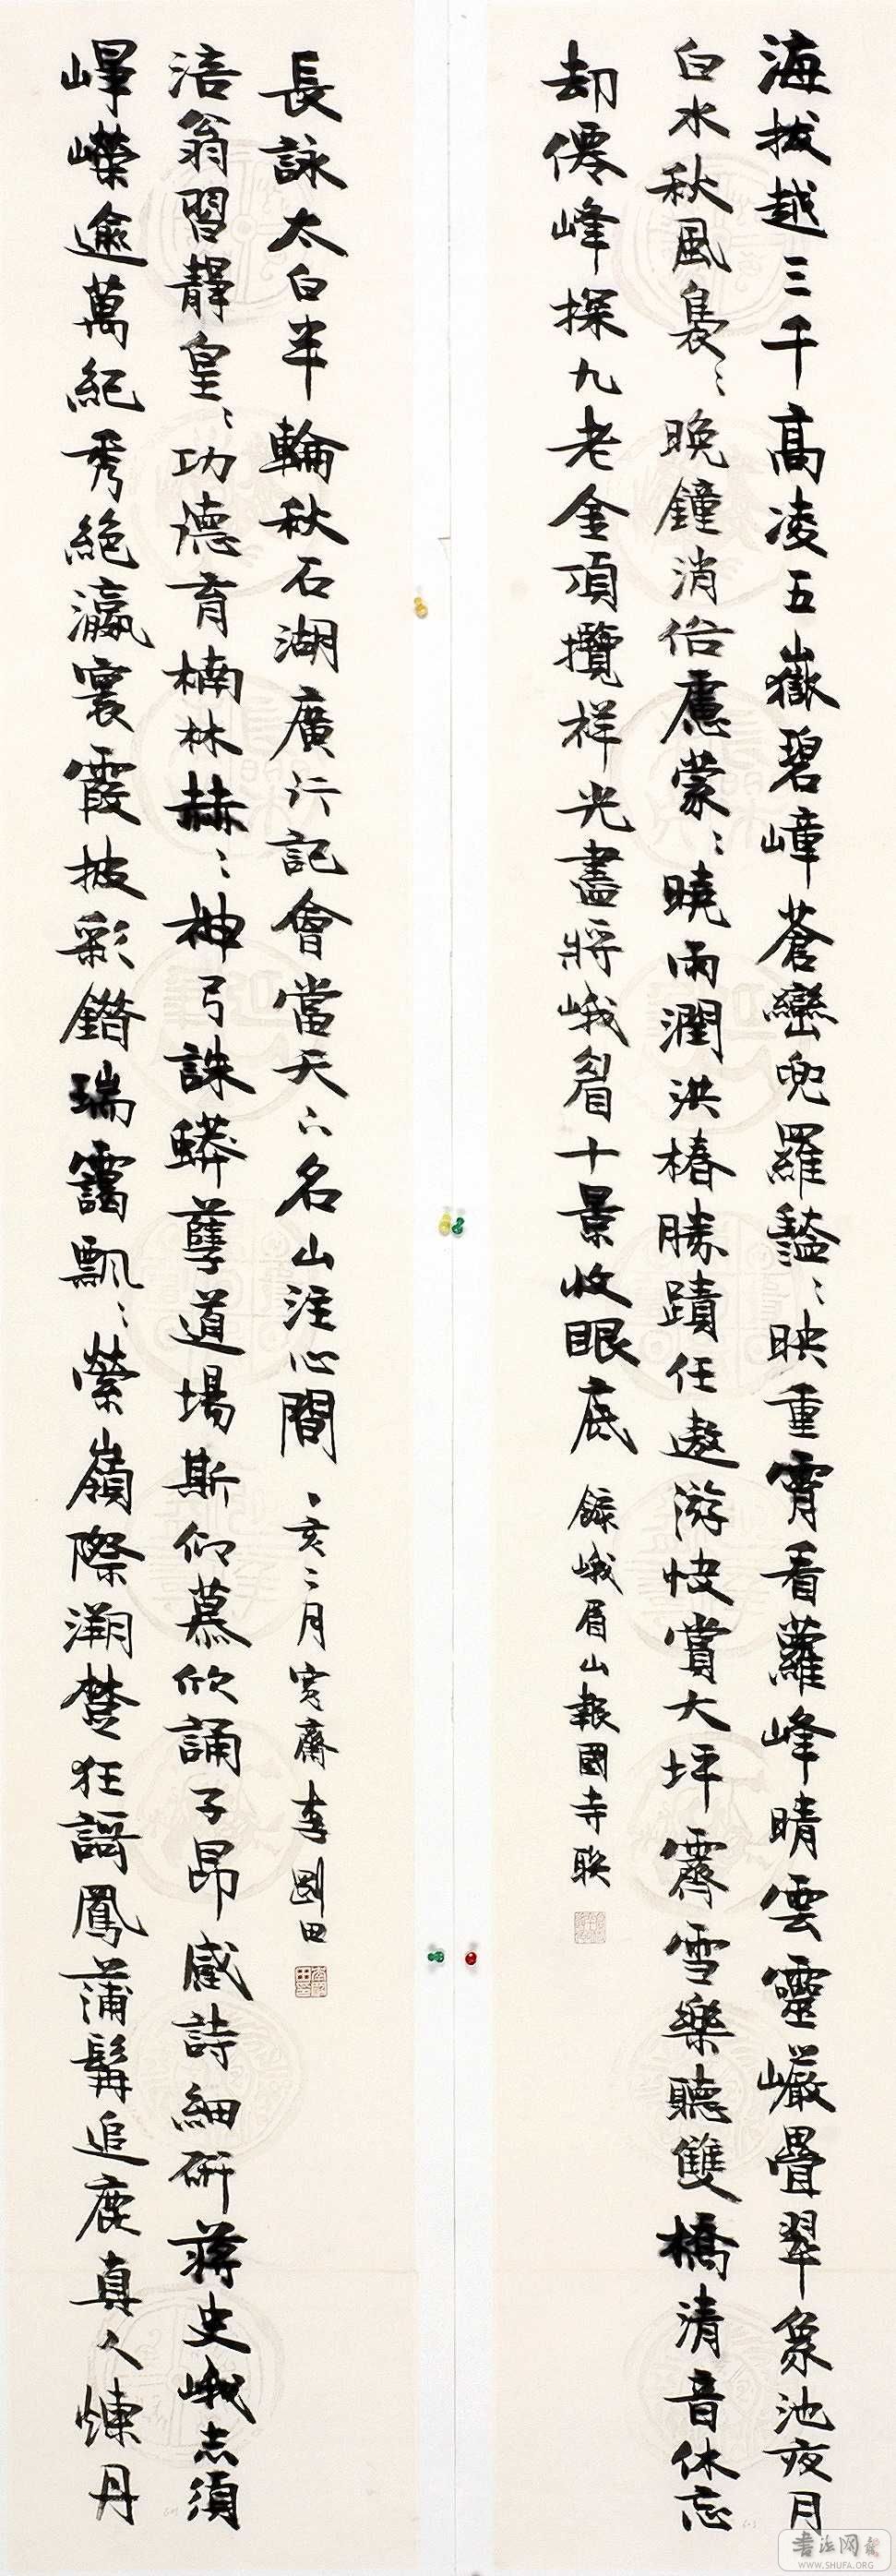 海拔越三千高凌五嶽碧嶂蒼巒兜羅豔〻映重霄看蘿峰晴雲靈巖疊翠象池夜月
白水秋風裊〻晚鐘消俗慮蒙〻曉雨潤洪椿勝蹟任遨游快賞大坪霽雪樂聽雙橋清音休忘
却僊峰探九老金頂攬祥光盡將峨眉十景收眼底
錄峨眉山報國寺聯
崢嶸逾萬紀秀絕瀛寰霞披彩錯瑞靄飄〻縈嶺際溯楚狂謌鳳蒲髯追鹿真人煉丹
涪翁習靜皇〻功德育楠林赫〻神弓誅蟒孽道場斯仰慕欣誦子昂感詩細研蔣史峨志須
長詠太白半輪秋石湖廣行記會當天下名山注心間
乙亥二月寬齋李剛田
書法网
WWW.SHUFA.ORG